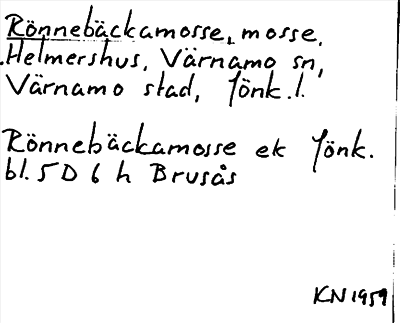 Rönnebäckamosse, mosse,
Helmershus, Värnamo sn,
Värnamo stad, Jönk.l.
Rönnebäckamosse ek Jönk.
bl. 5 D 6 h Brusås
KN 1959